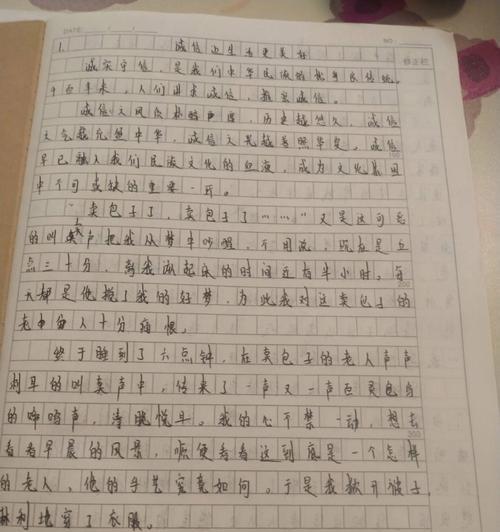 DATE:
NO:
1. 诚信让生活更美好
诚实守信,是我们中华民族的优良传统。
千百年来,人们讲求诚信,推崇诚信。
诚信之风质朴醇厚,历史越悠久,诚信
之气越充盈中华,诚信之光越普照华夏。诚信
早已融入我们民族文化的血液,成为文化基因
中不可或缺的重要一环。
“卖包子了,卖包子了……”又是这可恶
的叫卖声把我从梦中吵醒,不用说,现在是五
点三十分,离我该起床的时间还有半小时,每
天都是他搅了我的好梦,为此我对这卖包子的
老人十分痛恨。
终于睡到了六点钟,在卖包子的老人声声
刺耳的叫卖声中,传来了一声又一声
的鸣声,清脆悦耳。我的心不禁一动,想去
看看早晨的风景,顺便看看这到底是一个怎样
的老人,他的手艺究竟如何。于是我掀开被子,
麻利地穿了衣服。
100
200
300